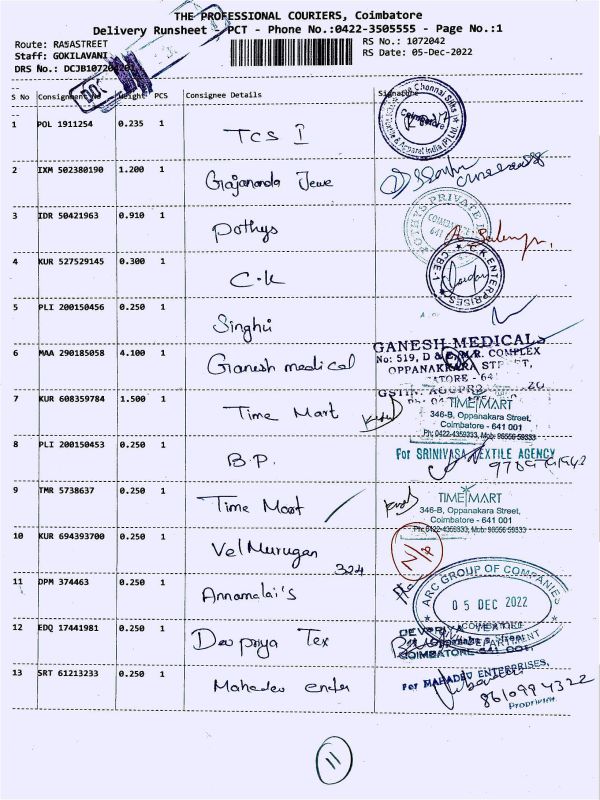 THE PROFESSIONAL COURIERS, Coimbatore
Delivery Runsheet - PCT - Phone No.:0422-3505555 - Page No.:1
Route: RAJASTREET
RS No.: 1072042
Staff: GOKILAVANI
RS Date: 05-Dec-2022
DRS No.:
S No Consignment No Weight PCS Consignee Details Signature
1 POL 1911254 0.235 1 TCS I
Chennai Silks
Coimbatore
2 IXM 502380190 1.200 1 Gajananda Jewe
3 IDR 50421963 0.910 1 Pothys
POTHYS PRIVATE
4 KUR 527529145 0.300 1 C.K
C.K ENTERPRISES
CBE-1
5 PLI 200150456 0.250 1 Singhvi
6 MAA 290185058 4.100 1 Ganesh medical
GANESH MEDICALS
No: 519, D & E, M.R. COMPLEX
OPPANAKKARA STREET,
7 KUR 608359784 1.500 1 Time Mart
TIME MART
346-B, Oppanakara Street,
Coimbatore - 641 001
Ph: 0422-4359333, Mob: 96556 59333
8 PLI 200150453 0.250 1 B.P.
For SRINIVASA TEXTILE AGENCY
9 TMR 5738637 0.250 1 Time Mart
TIME MART
346-B, Oppanakara Street,
Coimbatore - 641 001
Ph: 0422-4359333, Mob: 96556 59333
10 KUR 694393700 0.250 1 Vel Murugan
324
11 DPM 374463 0.250 1 Annamalai's
ARC GROUP OF COMPANIES
05 DEC 2022
12 EDQ 17441981 0.250 1 Devpriya Tex
COIMBATORE-641 001.
13 SRT 61213233 0.250 1 Mahadev enter
For MAHADEV ENTERPRISES,
8610994322
Proprietor
11